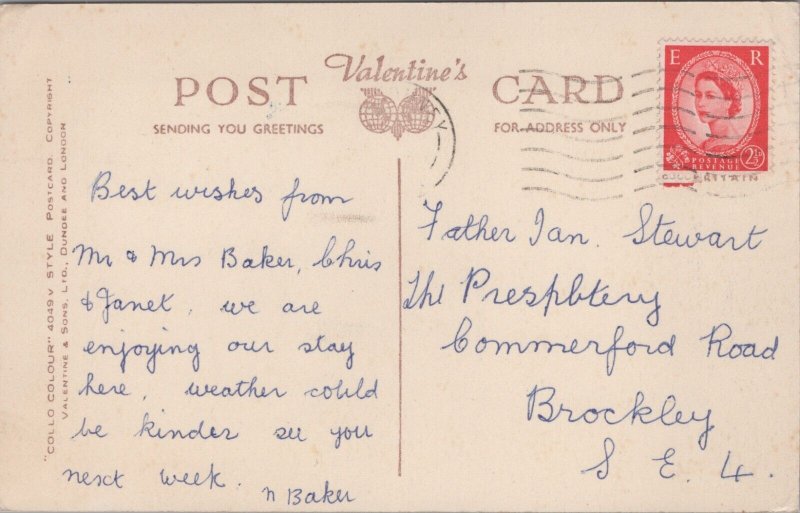 POST Valentine's CARD
SENDING YOU GREETINGS
FOR ADDRESS ONLY
E R
POSTAGE
REVENUE
2½D
"COLLO COLOUR" 4049V STYLE POSTCARD. COPYRIGHT
VALENTINE & SONS, LTD., DUNDEE AND LONDON
Best wishes from
Mr & Mrs Baker, Chris
& Janet, we are
enjoying our stay
here, weather could
be kinder see you
next week.
n Baker
Father Ian. Stewart
The Prespbtery
Commerford Road
Brockley
S E 4.